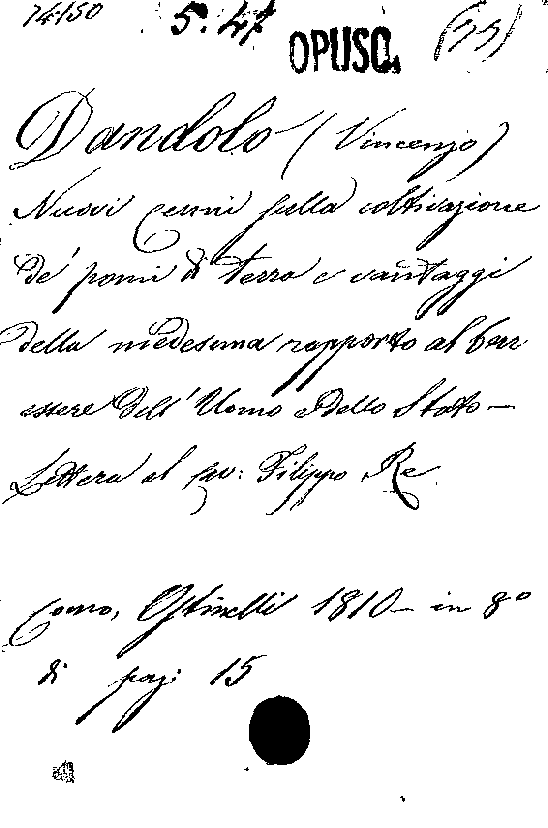 74150 5.47 OPUSC. (33)
Dandolo (Vincenzo)
Nuovi cenni sulla coltivazione
de' pomi di terra e vantaggi
della medesima rapporto al ben
essere dell' Uomo e dello Stato —
Lettera al cav: Filippo Re
Como, Ostinelli 1810 — in 8º
di pag: 15